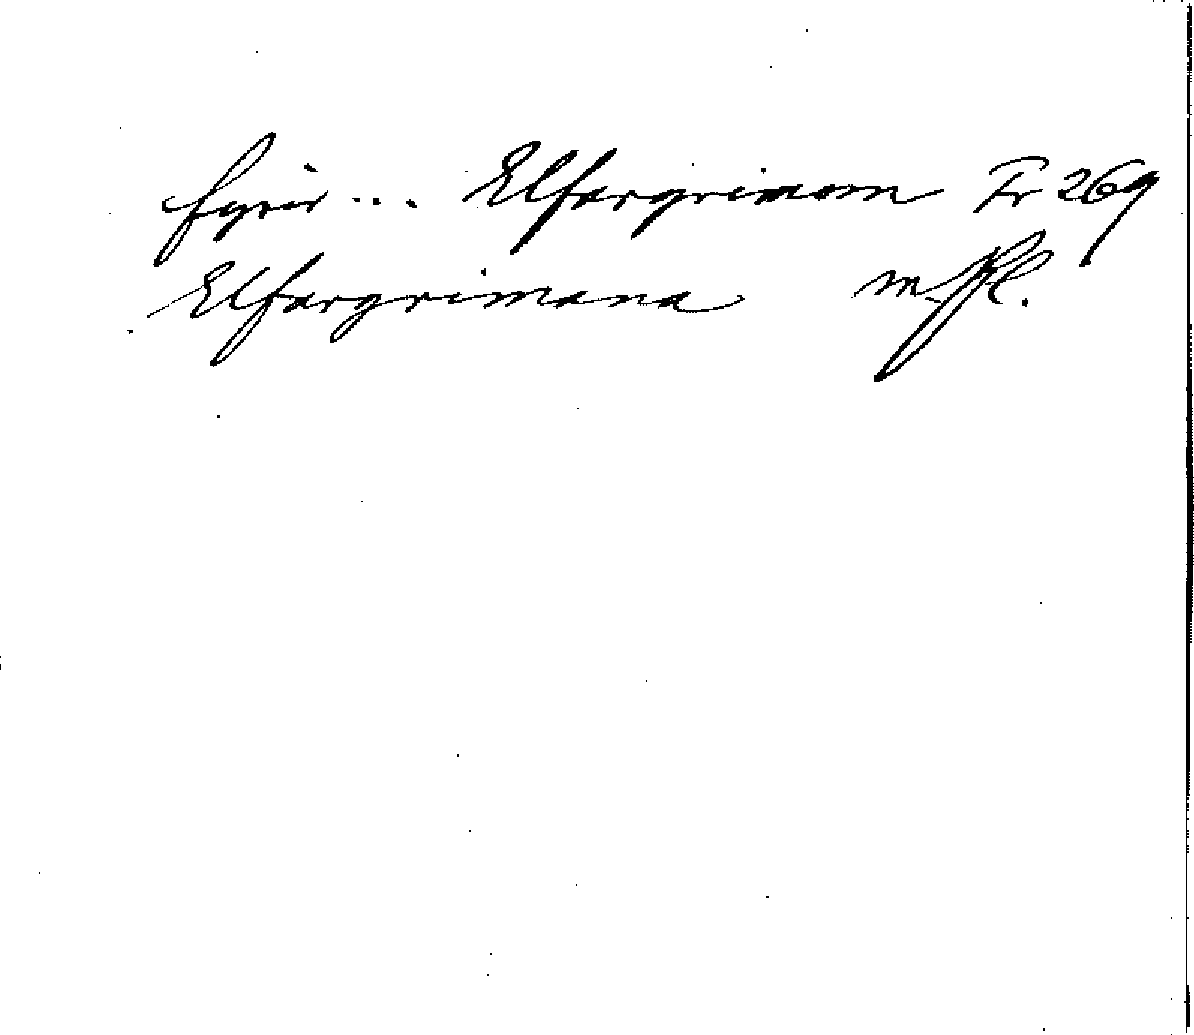 fyrir ... Elfargrimom Fr 269
Elfargrimana m. fl.